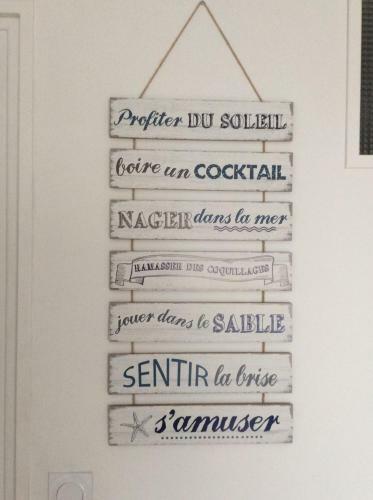 Profiter DU SOLEIL
boire un COCKTAIL
NAGER dans la mer
RAMASSER DES COQUILLAGES
jouer dans le SABLE
SENTIR la brise
s'amuser